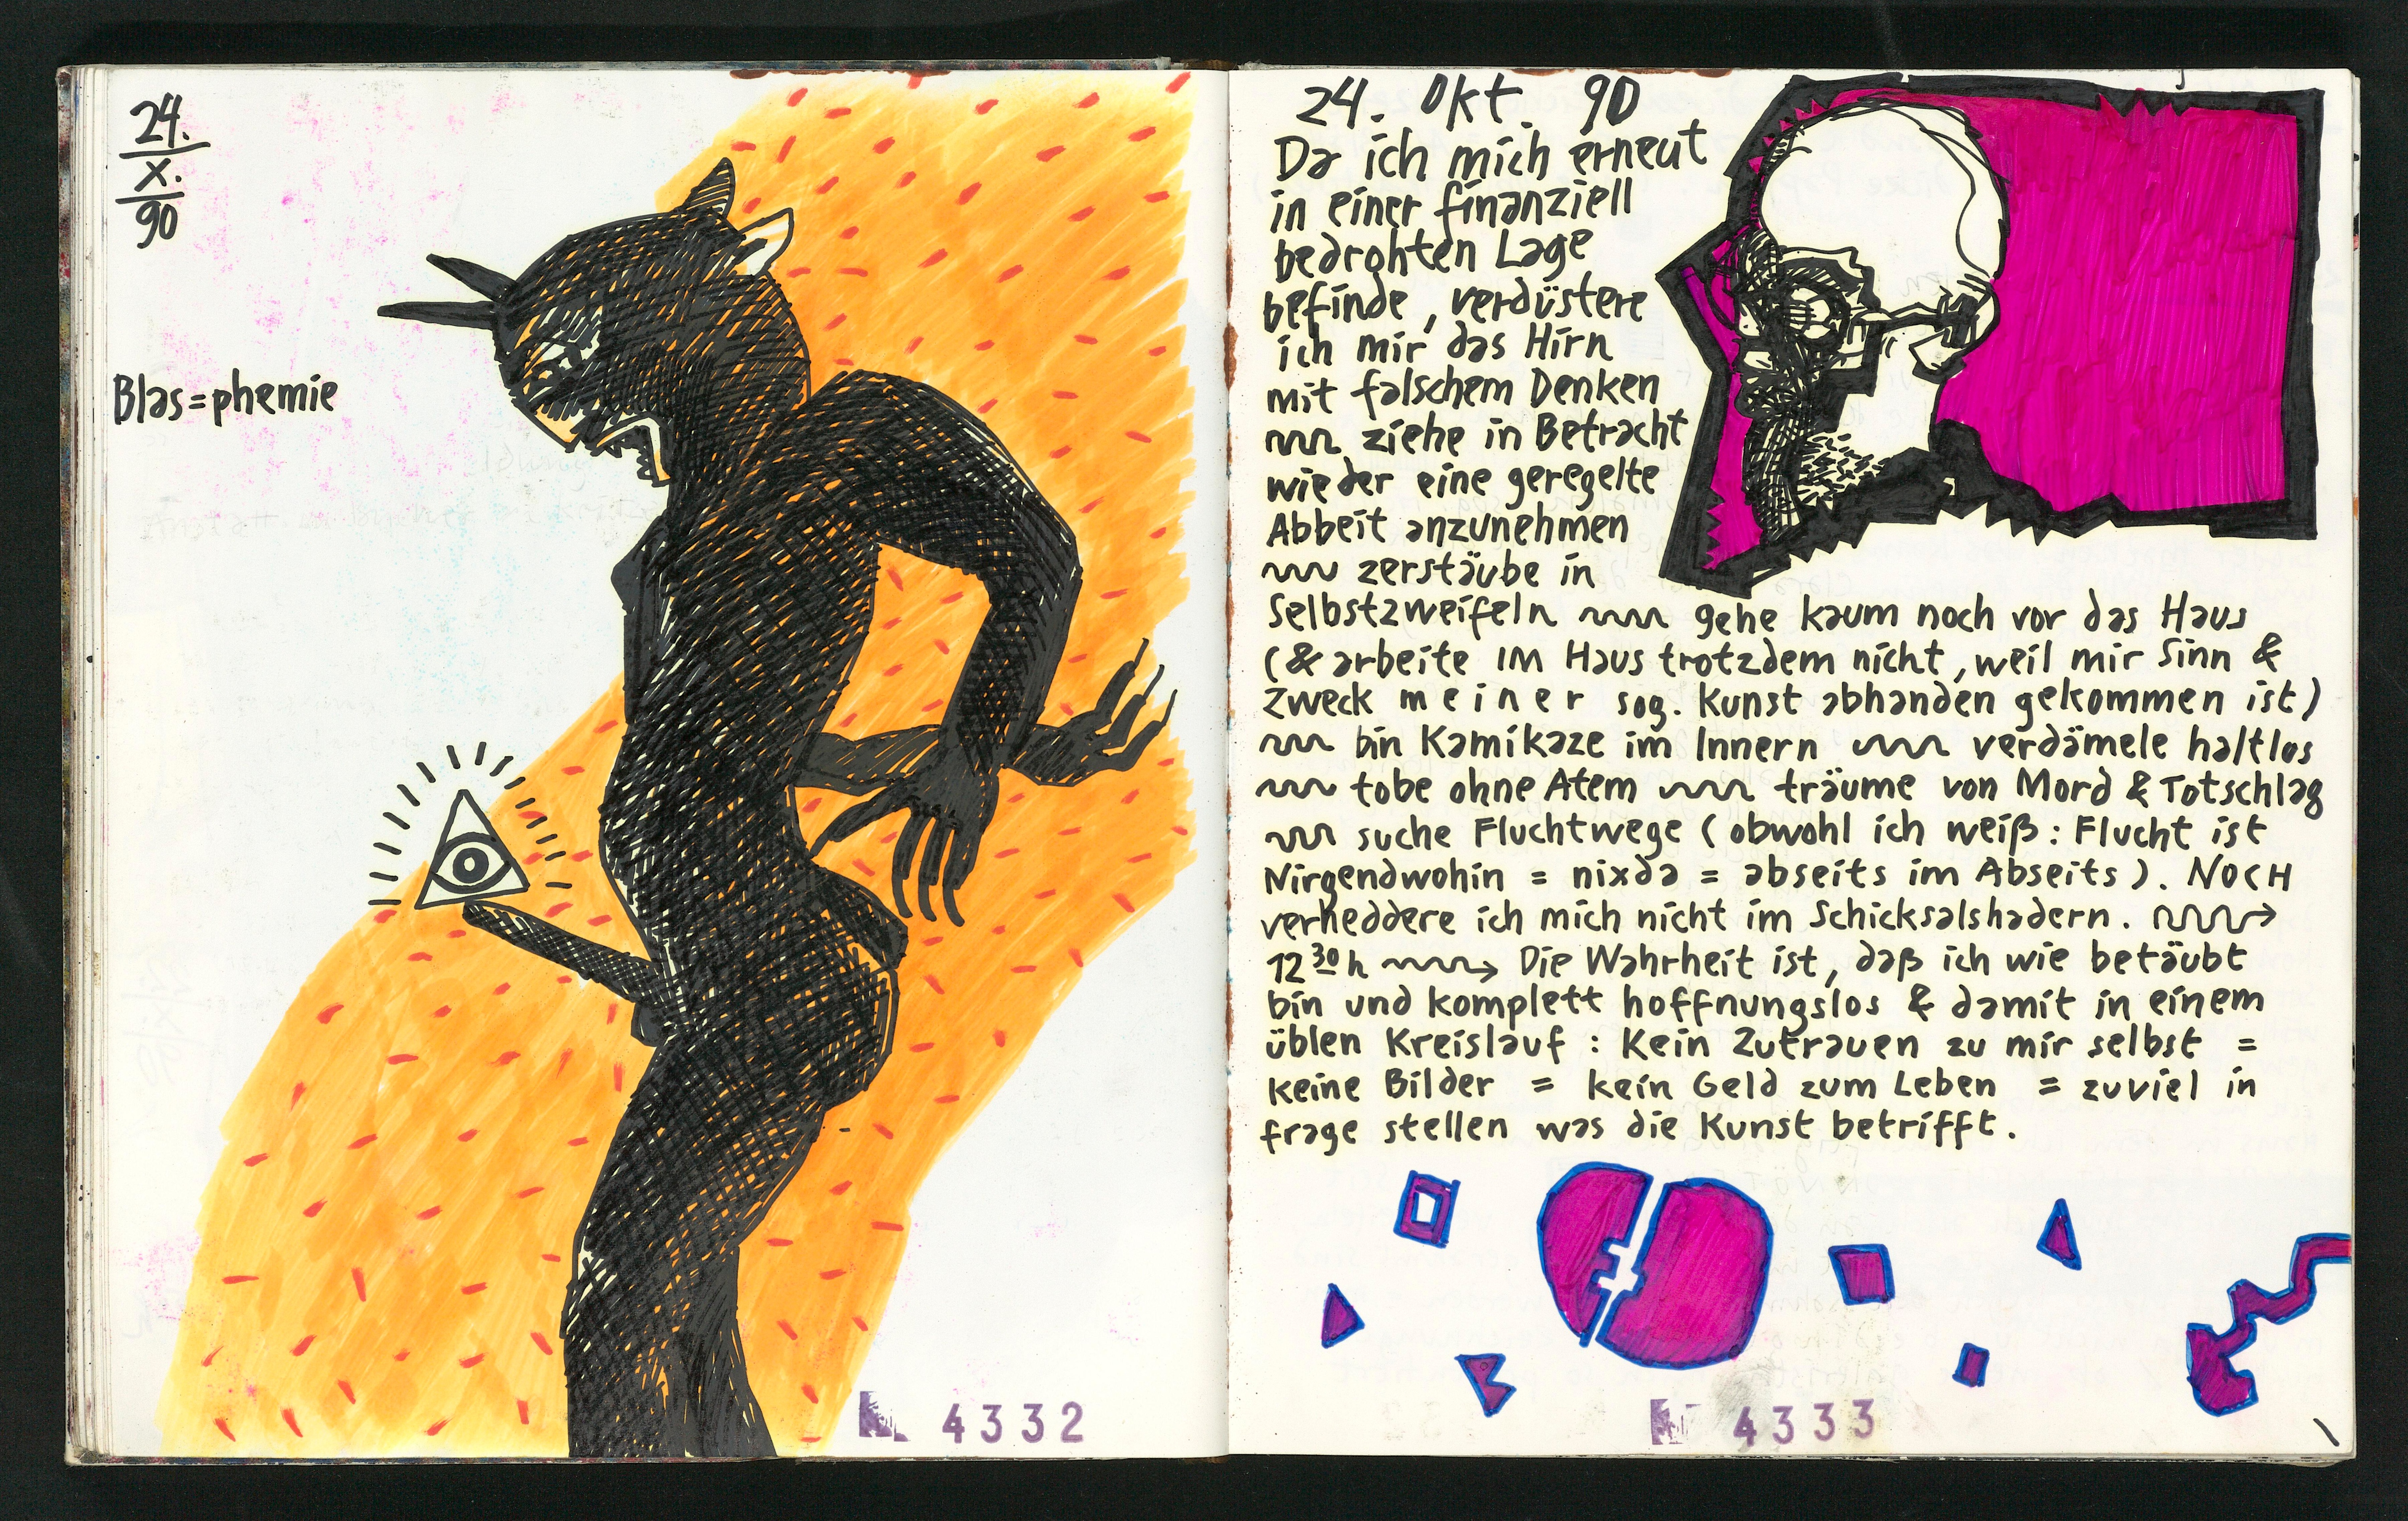 24.
X.
90
Blas=phemie
4332
24. Okt. 90
Da ich mich erneut
in einer finanziell
bedrohten Lage
befinde, verdüstere
ich mir das Hirn
mit falschem Denken
ziehe in Betracht
wieder eine geregelte
Abbeit anzunehmen
zerstäube in
Selbstzweifeln gehe kaum noch vor das Haus
(& arbeite IM Haus trotzdem nicht, weil mir Sinn &
Zweck meiner sog. Kunst abhanden gekommen ist)
bin Kamikaze im Innern verdämele haltlos
tobe ohne Atem träume von Mord & Totschlag
suche Fluchtwege (obwohl ich weiß: Flucht ist
Nirgendwohin = nixda = abseits im Abseits). NOCH
verheddere ich mich nicht im Schicksalshadern.
12 30 h Die Wahrheit ist, daß ich wie betäubt
bin und komplett hoffnungslos & damit in einem
üblen Kreislauf: Kein Zutrauen zu mir selbst =
keine Bilder = kein Geld zum Leben = zuviel in
frage stellen was die Kunst betrifft.
4333